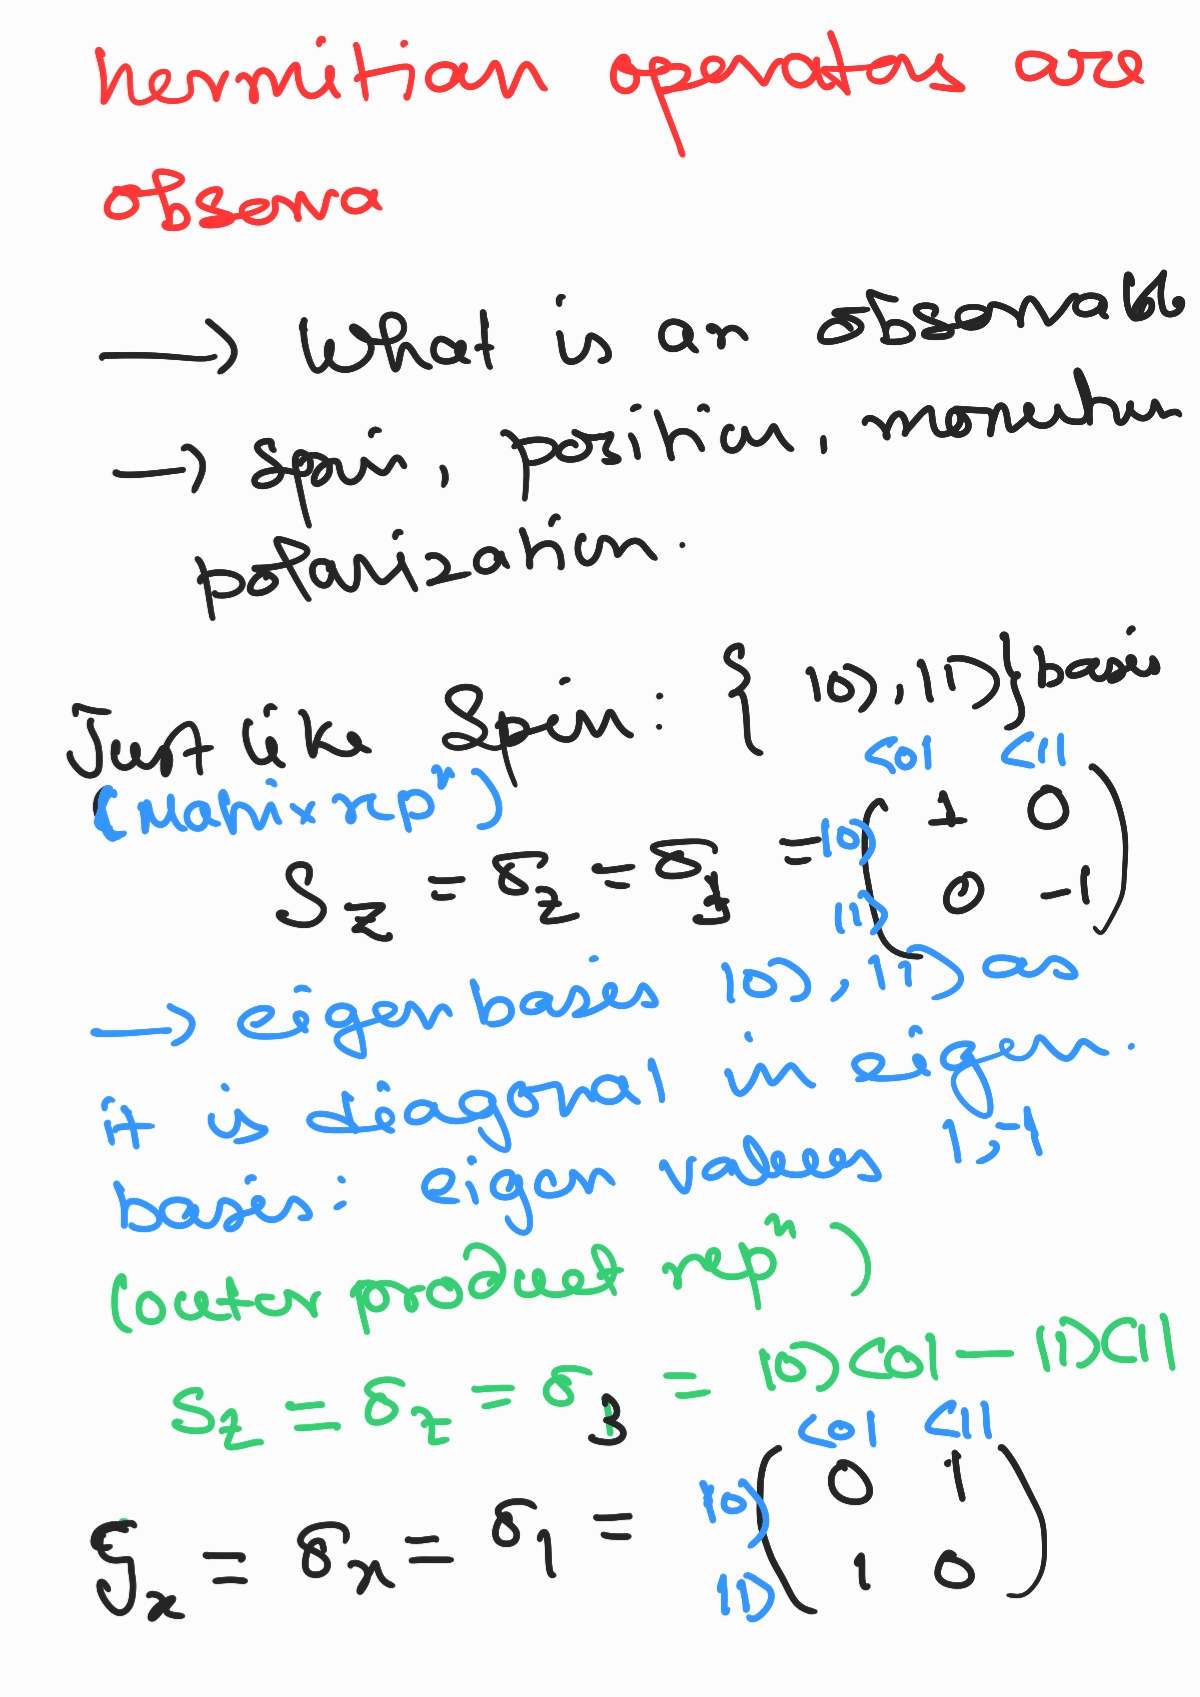 hermitian operators are
observa
→ What is an observable
→ Spin, position, momentum
polarization.
Just like Spin: { |0⟩, |1⟩} basis
(Matrix repⁿ)
⟨0| ⟨1|
S_z = σ_z = σ_3 = |0⟩ ( 1 0
|1⟩ 0 -1 )
→ eigen basis |0⟩, |1⟩ as
it is diagonal in eigen.
basis: eigen values 1, -1
(outer product repⁿ)
S_z = σ_z = σ_3 = |0⟩⟨0| - |1⟩⟨1|
⟨0| ⟨1|
S_x = σ_x = σ_1 = |0⟩ ( 0 1
|1⟩ 1 0 )